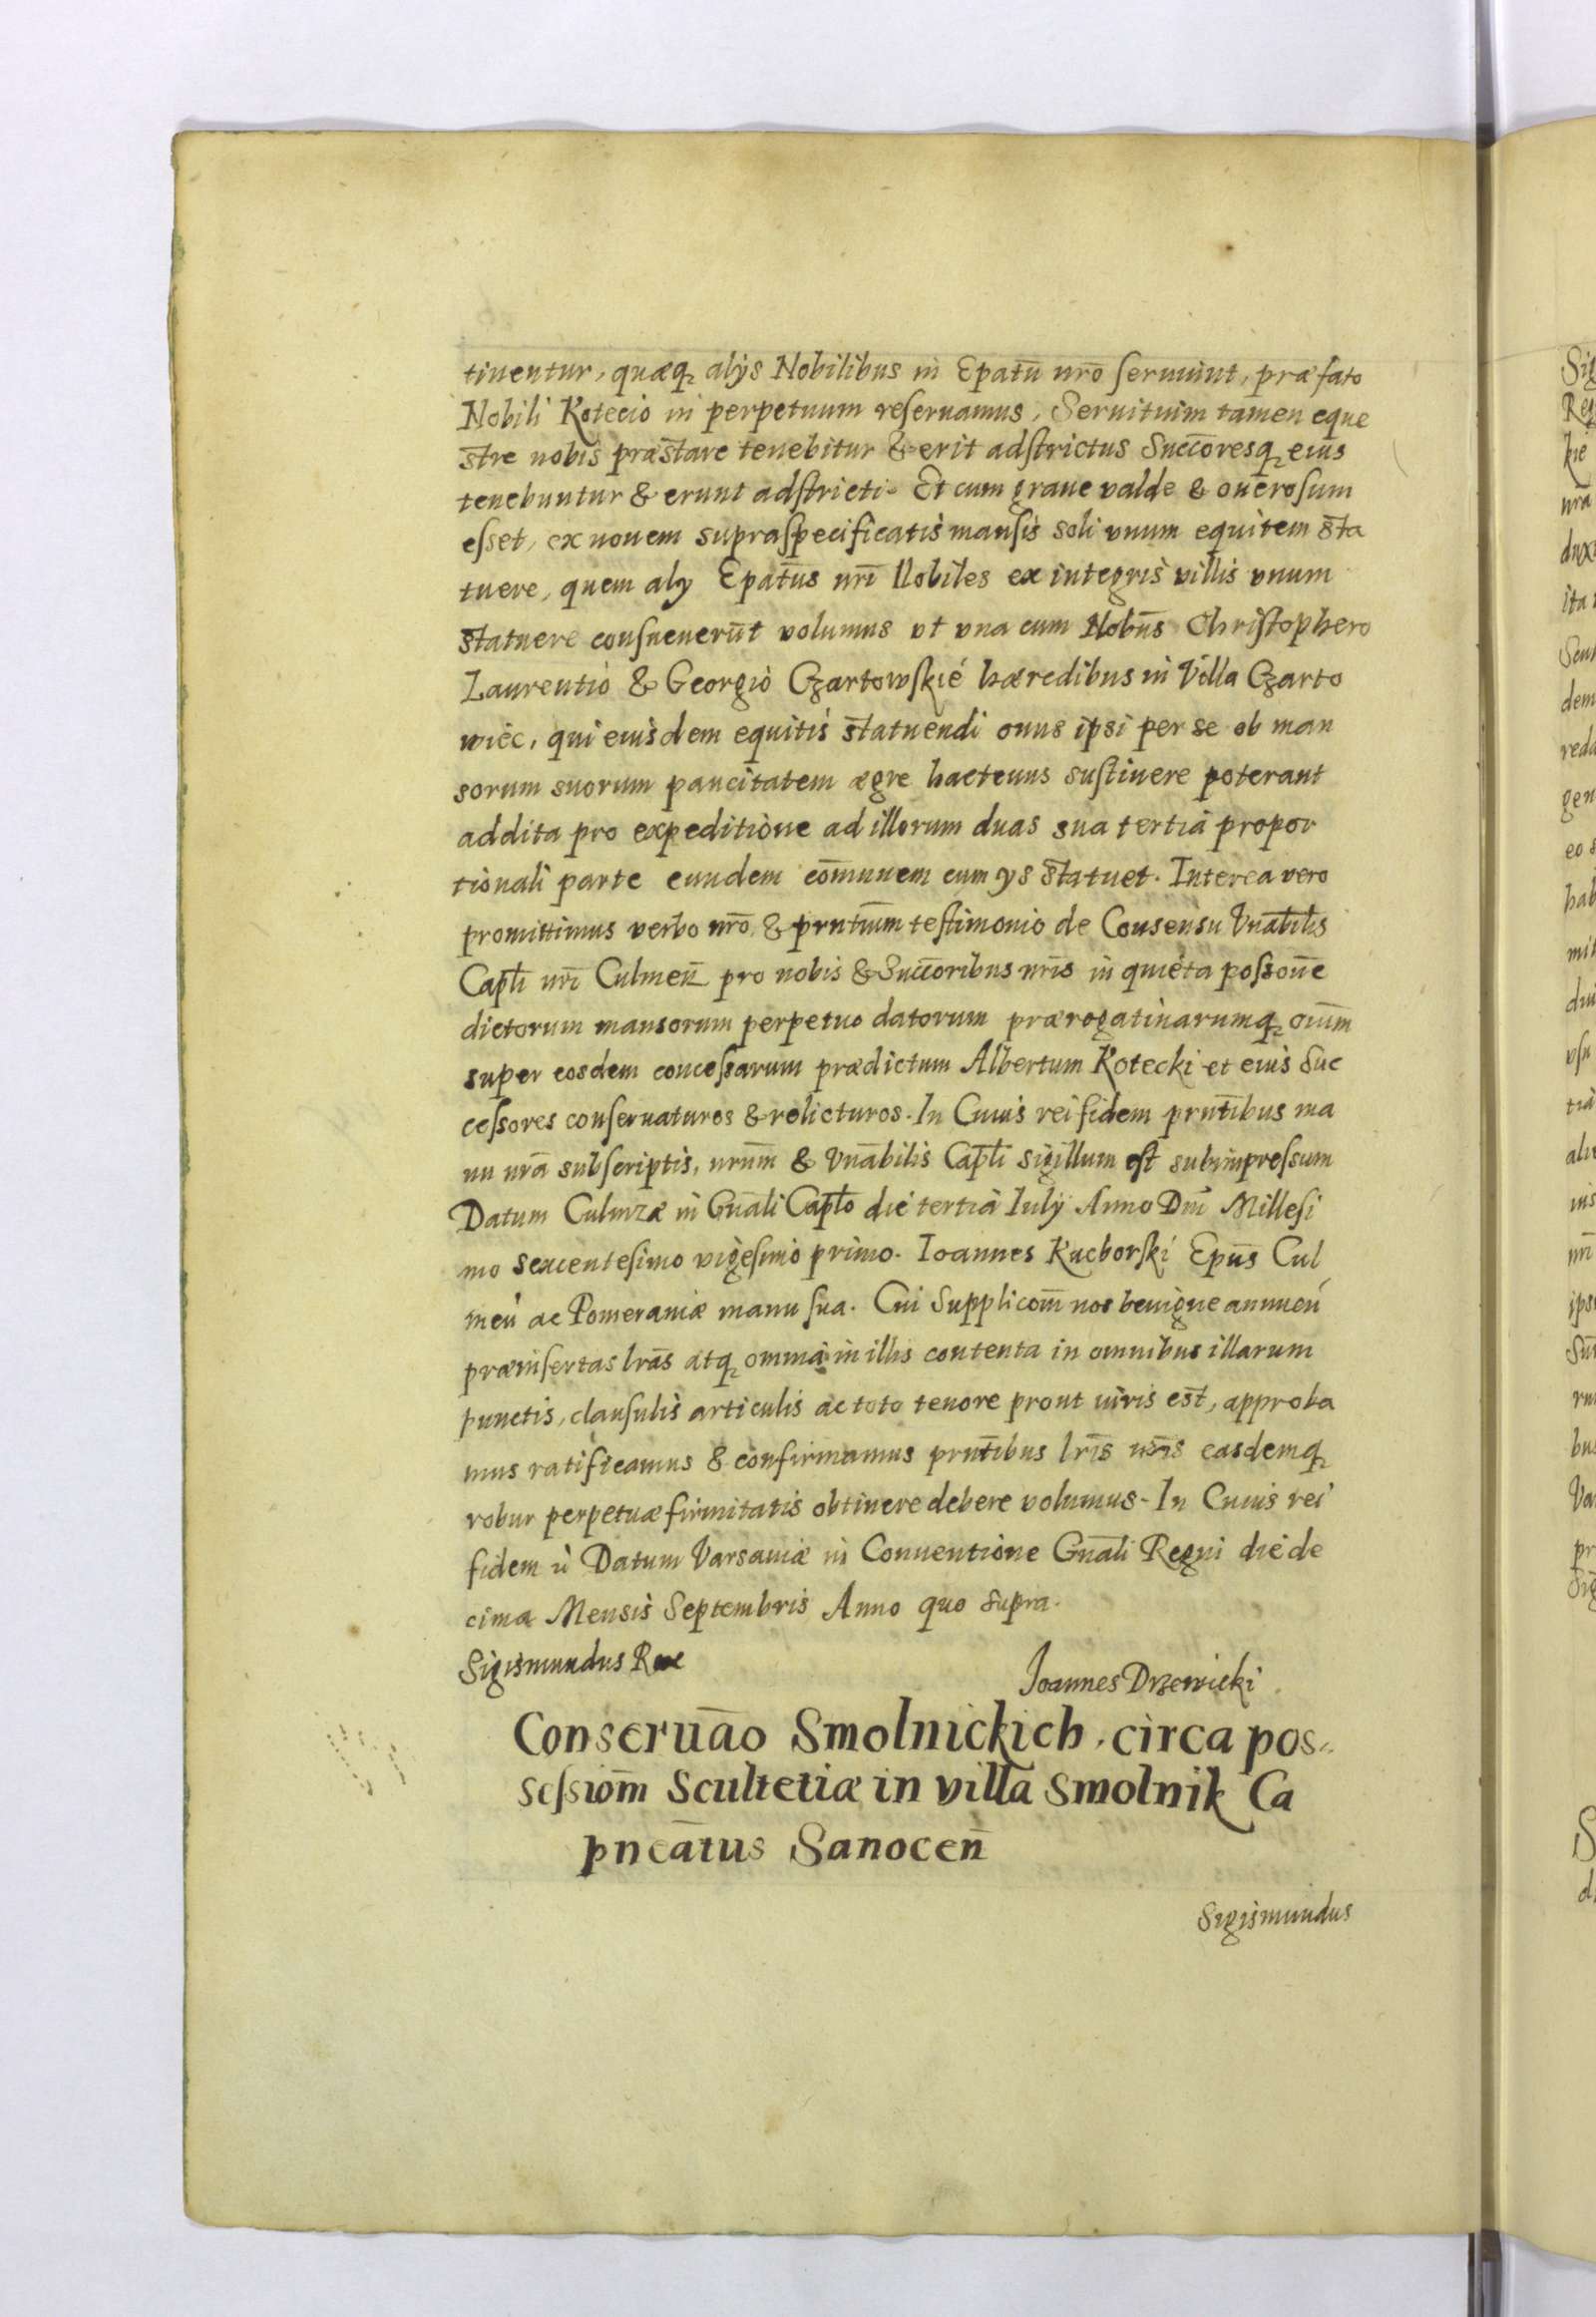 tinentur, quæq₃ alijs Nobilibus in Epatū nrō seruiunt, præfato
Nobili Kotecio in perpetuum reseruamus, Seruituim tamen eque
stre nobis præstare tenebitur & erit adstrictus Succoresq₃ eius
tenebuntur & erunt adstricti. Et cum graue valde & onerosum
esset, ex nouem supraspecificatis mansis soli vnum equitem sta
tuere, quem aly Epatūs nrī Nobiles ex integris villis vnum
statuere consueuerūt volumus vt vna cum Nobūs Christophero
Laurentio & Georgio Czartowskie hæredibus in Villa Czarto
wiec, qui eiusdem equitis statuendi onus ipsi per se ob man
sorum suorum paucitatem ægre hactenus sustinere poterant
addita pro expeditione ad illorum duas sua tertia propor
tionali parte eundem cōmunem cum ys statuet. Interea vero
promittimus verbo nrō & prntium̄ testimonio de Consensu Vnābilis
Capłi nrī Culmeñ pro nobis & Succoribus nrīs in quieta possoñe
dictorum mansorum perpetuo datorum prærogatiuarumq₃ oium̄
super eosdem concessarum prædictum Albertum Kotecki et eius Suc
cessores conseruaturos & relicturos. In Cuius rei fidem prntībus ma
nu nrā subscriptis, nrum̄ & Vnābilis Capłi sigillum est subimpressum
Datum Culmzæ in Gnāli Capło die tertia Iuly Anno Dnī Millesi
mo sexcentesimo vigesimo primo. Ioannes Kucborski Epūs Cul
meñ ac Pomeraniæ manu sua. Cui Supplicoīn nos benigne annueñ
præinsertas lrās atq₃ omnia in illis contenta in omnibus illarum
punctis, clausulis articulis ac toto tenore prout iuris est, approba
mus ratificamus & confirmamus prntībus lrīs nrīs easdemq₃
robur perpetuæ firmitatis obtinere debere volumus. In Cuius rei
fidem Datum Varsauiæ in Conuentione Gnāli Regni die de
cima Mensis Septembris Anno quo supra.
Sigismundus Rex
Joannes Drzewicki
Conseruāo Smolnickich, circa pos
sessiom̄ Scultetiæ in villa Smolnik Ca
pneātus Sanoceñ
Sigismundus